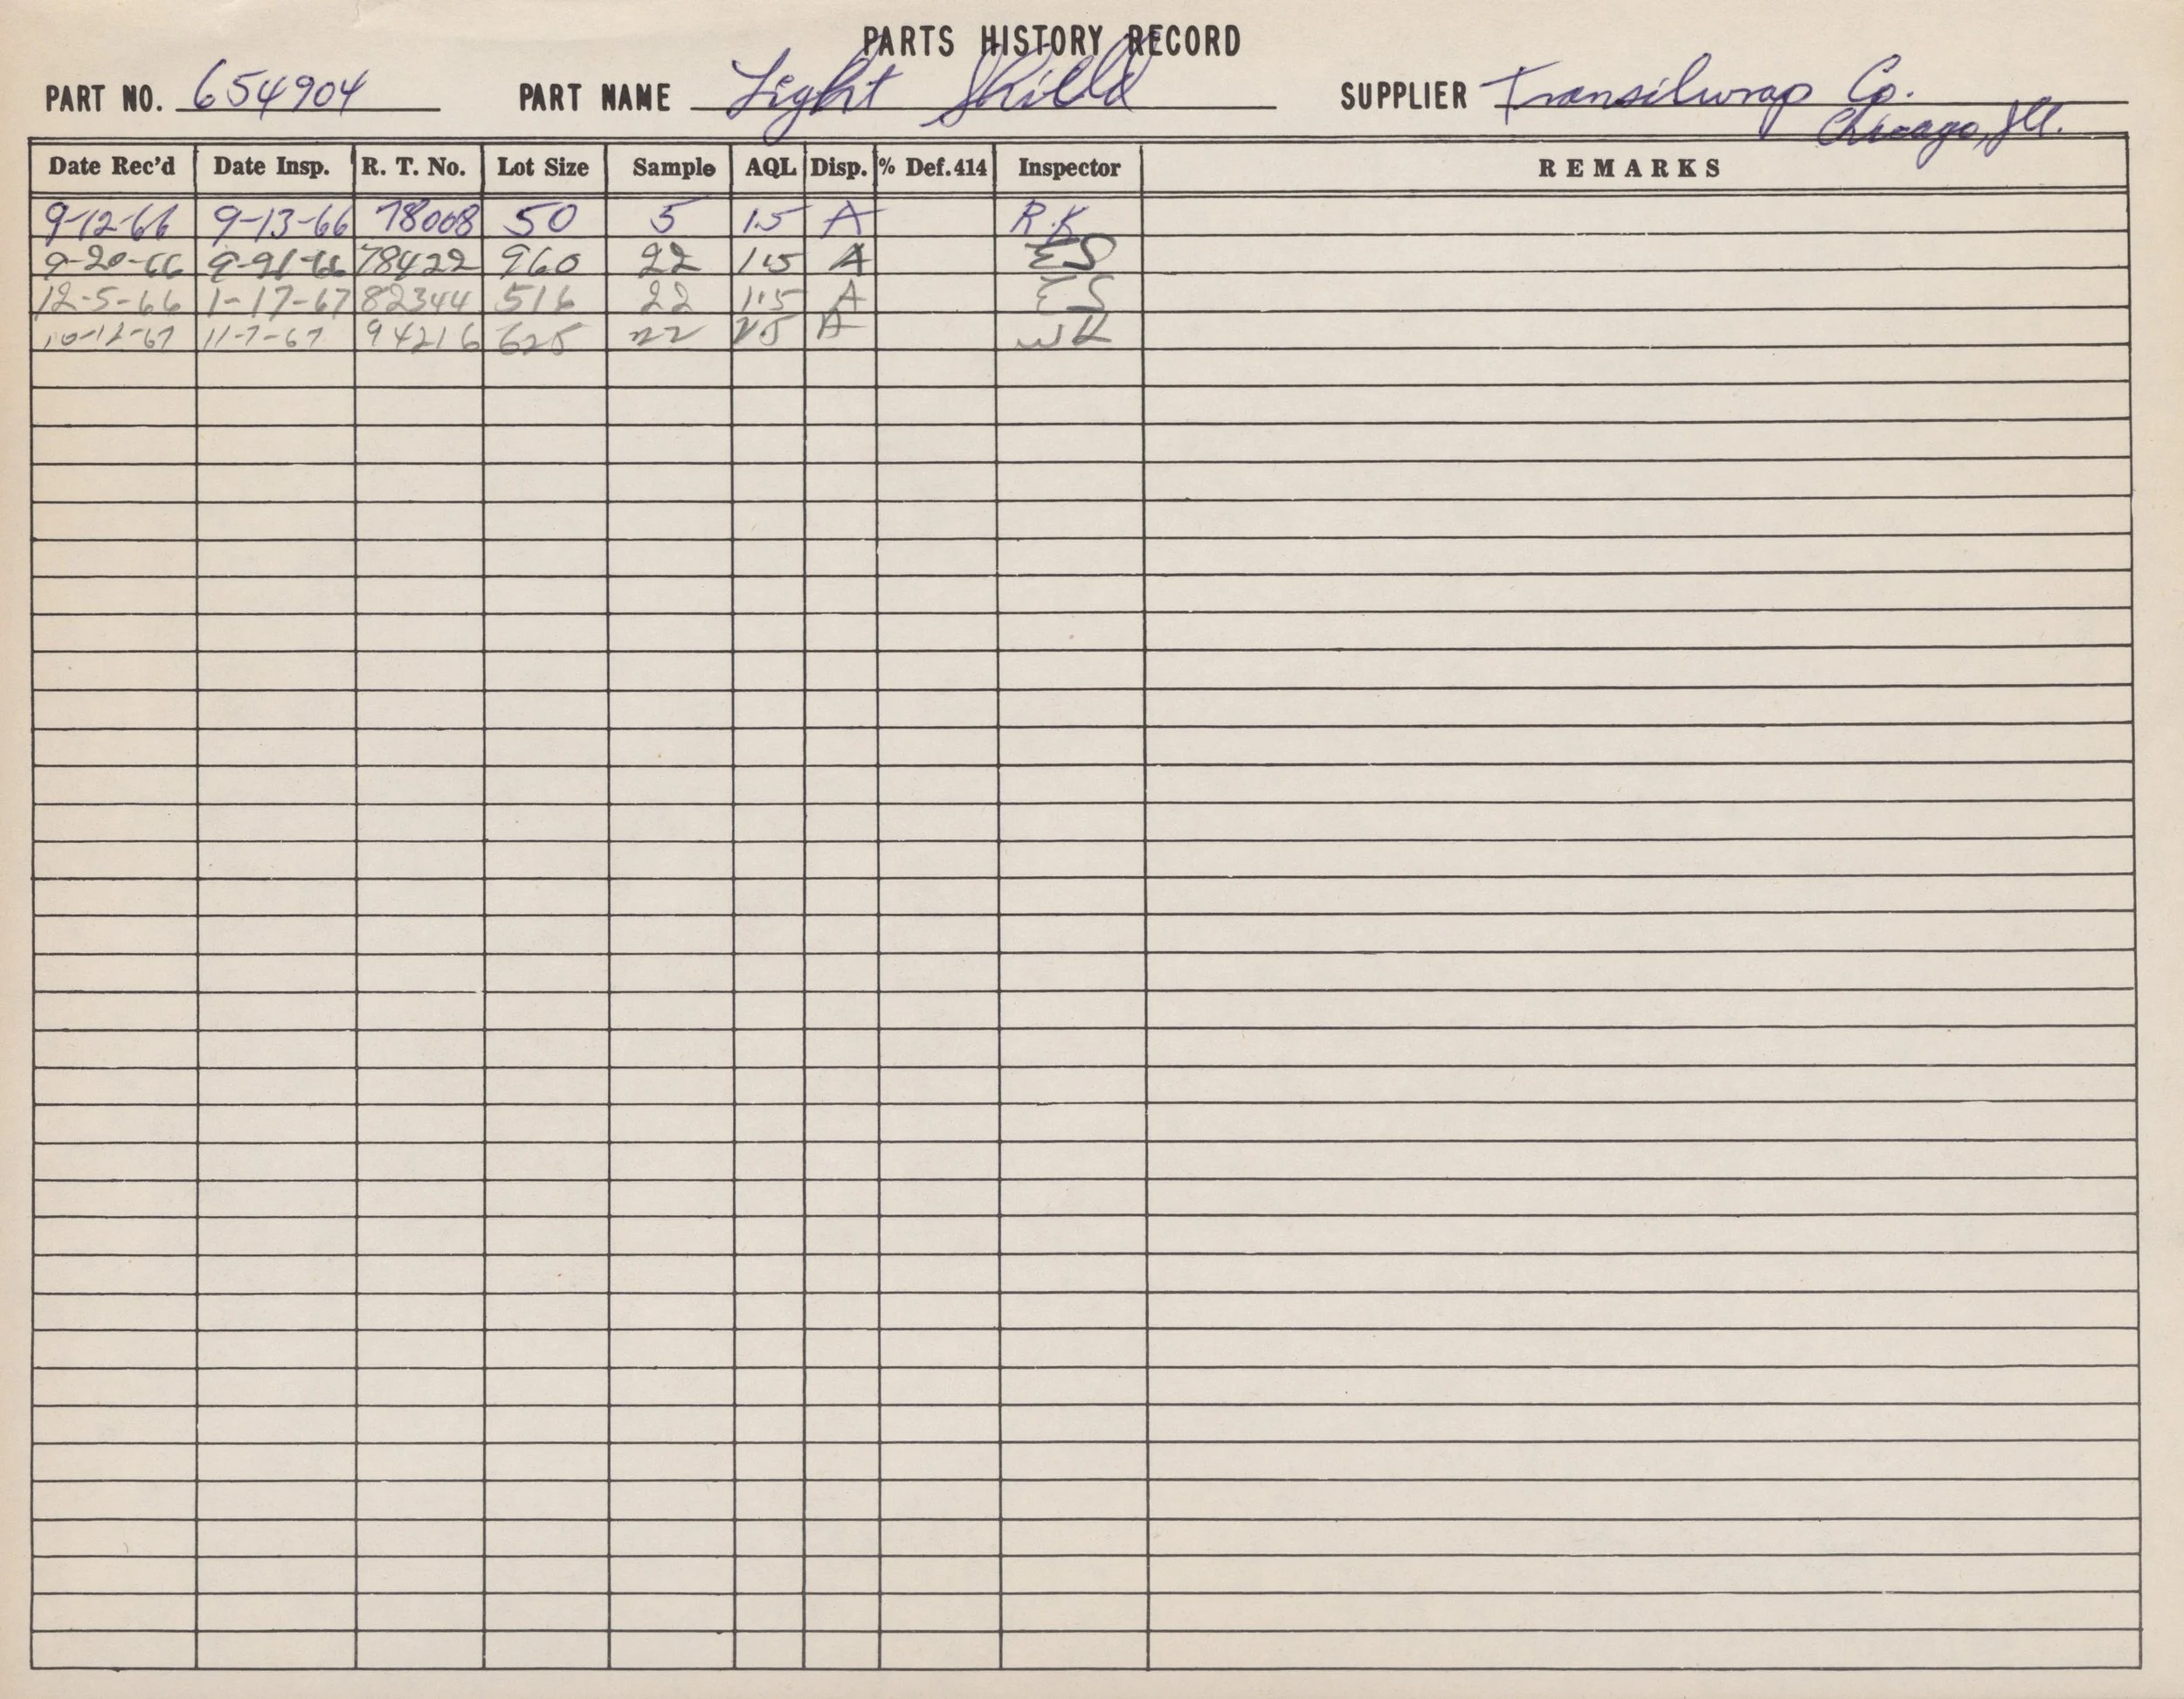 PARTS HISTORY RECORD
PART NO. 654904 PART NAME Light Shilld SUPPLIER Transilwrap Co.
Chicago, Ill.
Date Rec'd Date Insp. R. T. No. Lot Size Sample AQL Disp. % Def.414 Inspector REMARKS
9-12-66 9-13-66 78008 50 5 1.5 A R.K
9-20-66 9-21-66 78422 960 22 1.5 A ES
12-5-66 1-17-67 82344 516 22 1.5 A ES
10-12-67 11-7-67 94216 625 22 A WK